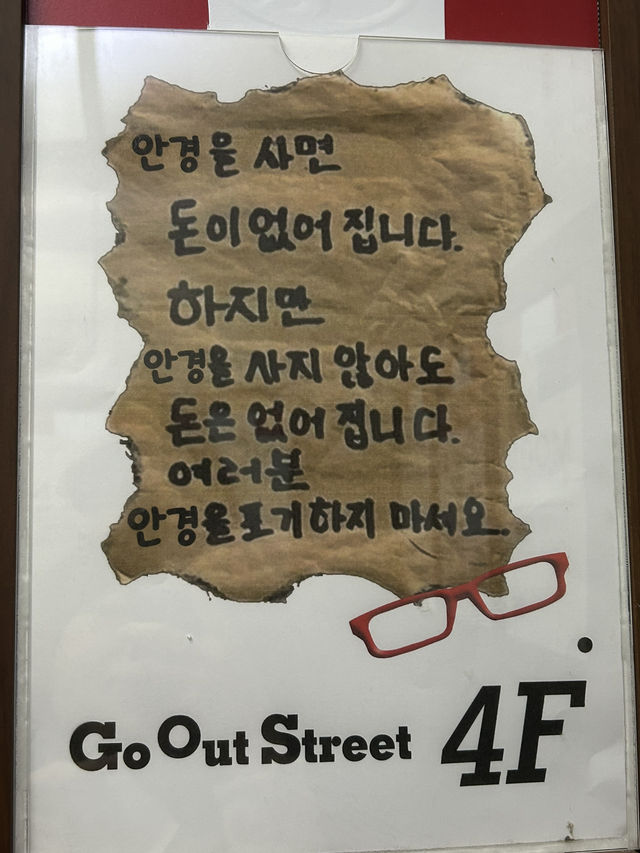 안경을 사면
돈이 없어 집니다.
하지만
안경을 사지 않아도
돈은 없어 집니다.
여러분
안경을 포기하지 마세요.
Go Out Street 4F